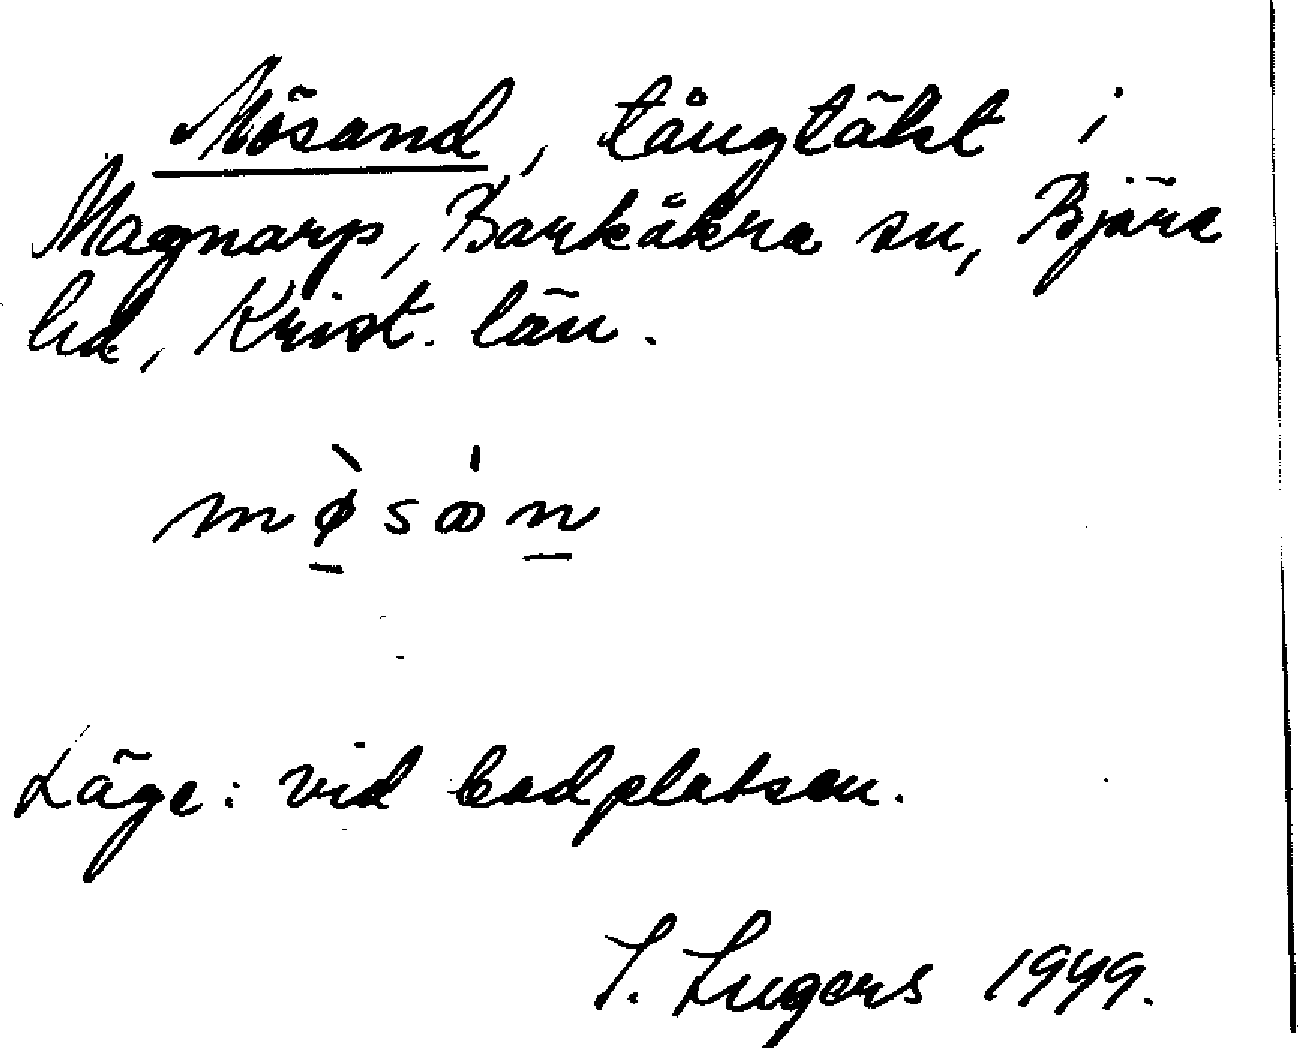 Mösand, tångtäkt i
Magnarp, Barkåkra sn, Bjäre
hd, Krist. län.
Läge: vid badplatsen.
1949.